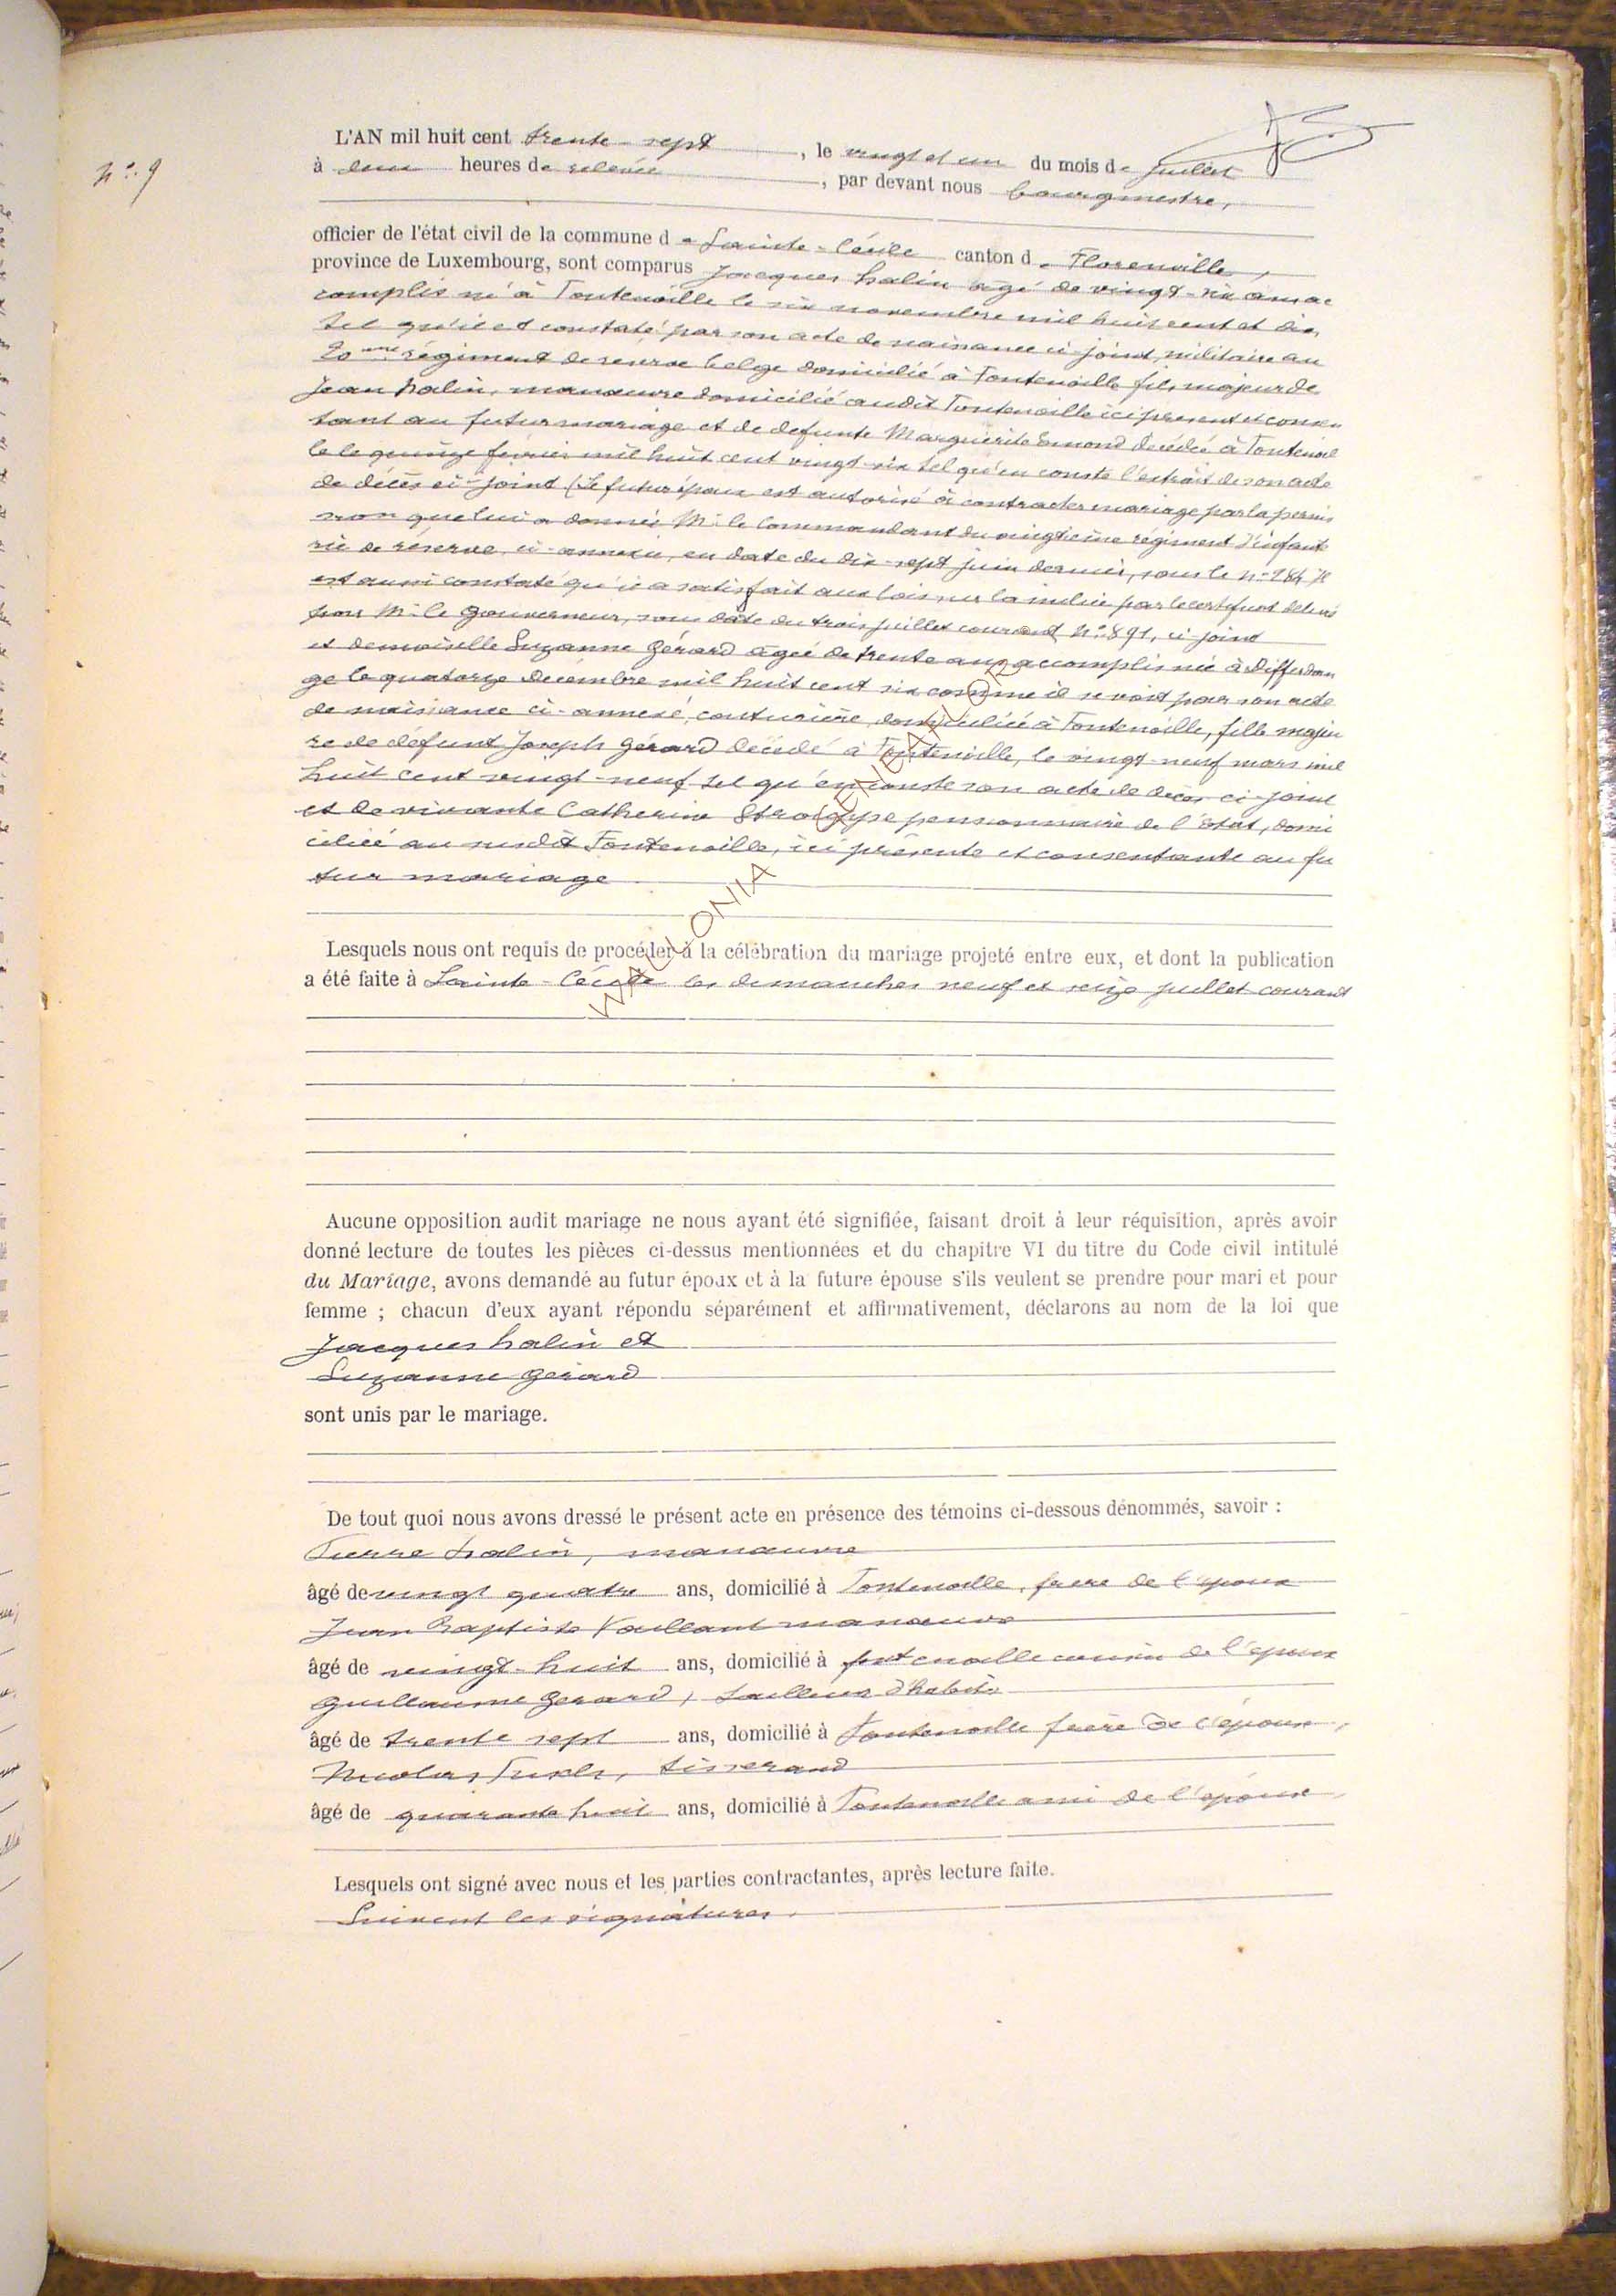 N° 9
L'AN mil huit cent trente-sept, le vingt et un du mois de juillet
à deux heures de relevée, par devant nous bourgmestre,
officier de l'état civil de la commune de Sainte-Cécile canton de Florenville,
province de Luxembourg, sont comparus Jacques halin âgé de vingt-six ans ac
complis né à Fontenoille le six novembre mil huit cent et dix,
tel qu'il est constaté par son acte de naissance ci-joint, militaire au
20me régiment de reserve belge domicilié à Fontenoille fils majeur de
Jean halin, manœuvre domicilié audit Fontenoille ici present et consen
tant au futur mariage et de defunte Marguerite Emond décédée à Fontenoil
le le quinze février mil huit cent vingt-six tel qu'en conste l'extrait de son acte
de décès ci-joint (Le futur époux est autorisé à contracter mariage par la permis
sion que lui a donnée Mr. le Commandant du vingtième régiment d'infante
rie de réserve, ci-annexée, en date du dix-sept juin dernier, sous le n° 284 Il
est aussi constaté qu'il a satisfait aux lois sur la milice par le certificat délivré
par Mr. le Gouverneur, sous date du trois juillet courant N° 891, ci-joint
et demoiselle Suzanne Gérard agée de trente ans accomplis née à Differdan
ge le quatorze décembre mil huit cent six comme il se voit par son acte
de naissance ci-annexé, couturière, domiciliée à Fontenoille, fille majeu
re de défunt Joseph Gérard décédé à Fontenoille, le vingt-neuf mars mil
huit cent vingt-neuf tel qu'en conste son acte de décès ci-joint
et de vivante Catherine pensionnaire de l'Etat, domi
ciliée au susdit Fontenoille, ici présente et consentante au fu
tur mariage
WALLONIA GENEALOGIE
Lesquels nous ont requis de procéder à la célébration du mariage projeté entre eux, et dont la publication
a été faite à Sainte-Cécile les dimanches neuf et seize juillet courant
Aucune opposition audit mariage ne nous ayant été signifiée, faisant droit à leur réquisition, après avoir
donné lecture de toutes les pièces ci-dessus mentionnées et du chapitre VI du titre du Code civil intitulé
du Mariage, avons demandé au futur époux et à la future épouse s'ils veulent se prendre pour mari et pour
femme ; chacun d'eux ayant répondu séparément et affirmativement, déclarons au nom de la loi que
Jacques halin et
Suzanne Gérard
sont unis par le mariage.
De tout quoi nous avons dressé le présent acte en présence des témoins ci-dessous dénommés, savoir :
Pierre halin, manœuvre
âgé de vingt quatre ans, domicilié à Fontenoille, frere de l'epoux
Jean Baptiste Vaillant manœuvre
âgé de vingt-huit ans, domicilié à fontenoille cousin de l'epoux
Guillaume Gerard, tailleur d'habits
âgé de trente sept ans, domicilié à Fontenoille frère de l'épouse,
Nicolas tisserand
âgé de quarante huit ans, domicilié à Fontenoille ami de l'epouse,
Lesquels ont signé avec nous et les parties contractantes, après lecture faite.
Suivent les signatures.